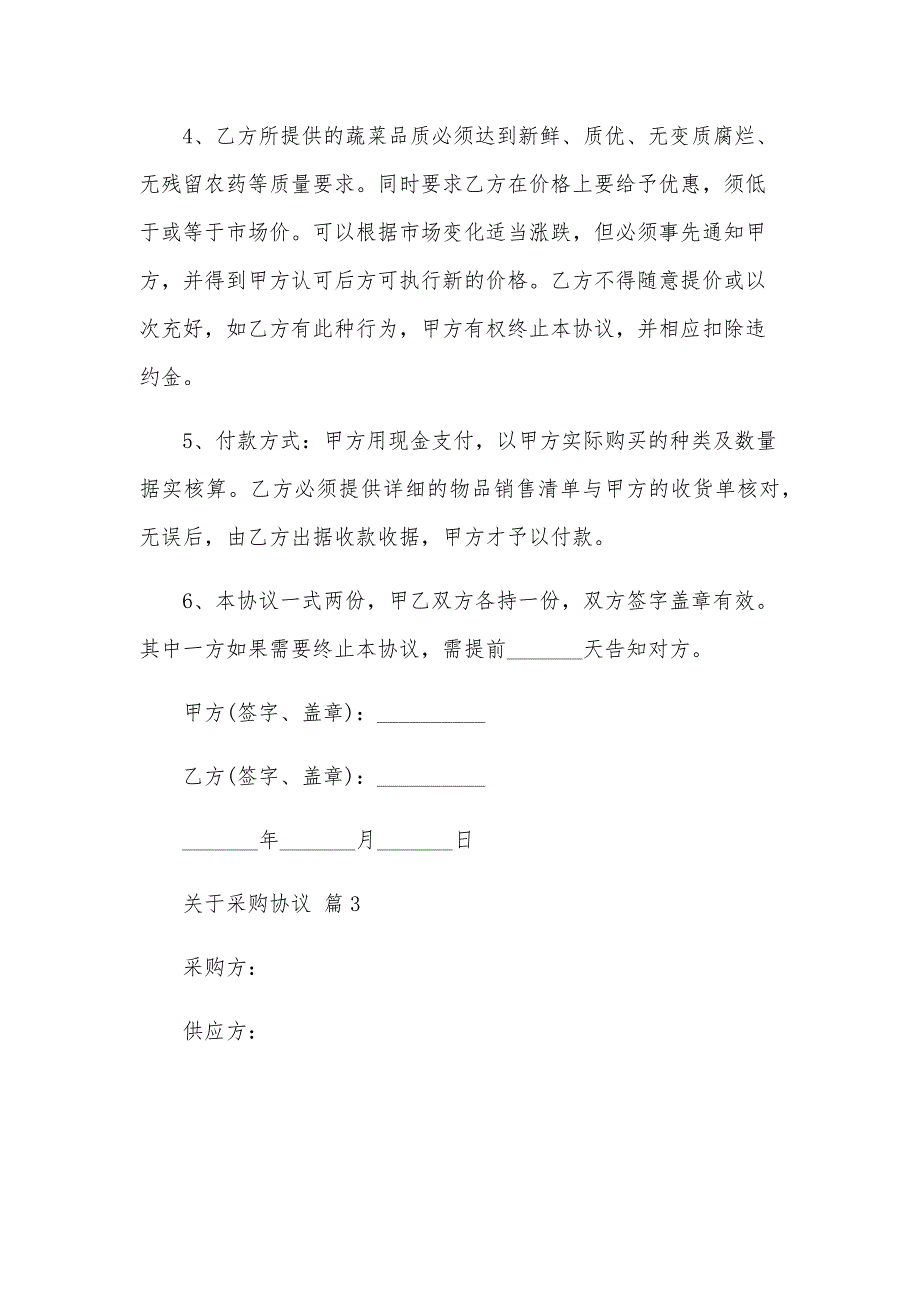 4、乙方所提供的蔬菜品质必须达到新鲜、质优、无变质腐烂、
无残留农药等质量要求。同时要求乙方在价格上要给予优惠，须低
于或等于市场价。可以根据市场变化适当涨跌，但必须事先通知甲
方，并得到甲方认可后方可执行新的价格。乙方不得随意提价或以
次充好，如乙方有此种行为，甲方有权终止本协议，并相应扣除违
约金。
5、付款方式：甲方用现金支付，以甲方实际购买的种类及数量
据实核算。乙方必须提供详细的物品销售清单与甲方的收货单核对，
无误后，由乙方出据收款收据，甲方才予以付款。
6、本协议一式两份，甲乙双方各持一份，双方签字盖章有效。
其中一方如果需要终止本协议，需提前_______天告知对方。
甲方(签字、盖章)：__________
乙方(签字、盖章)：__________
_______年_______月_______日
关于采购协议 篇3
采购方：
供应方：